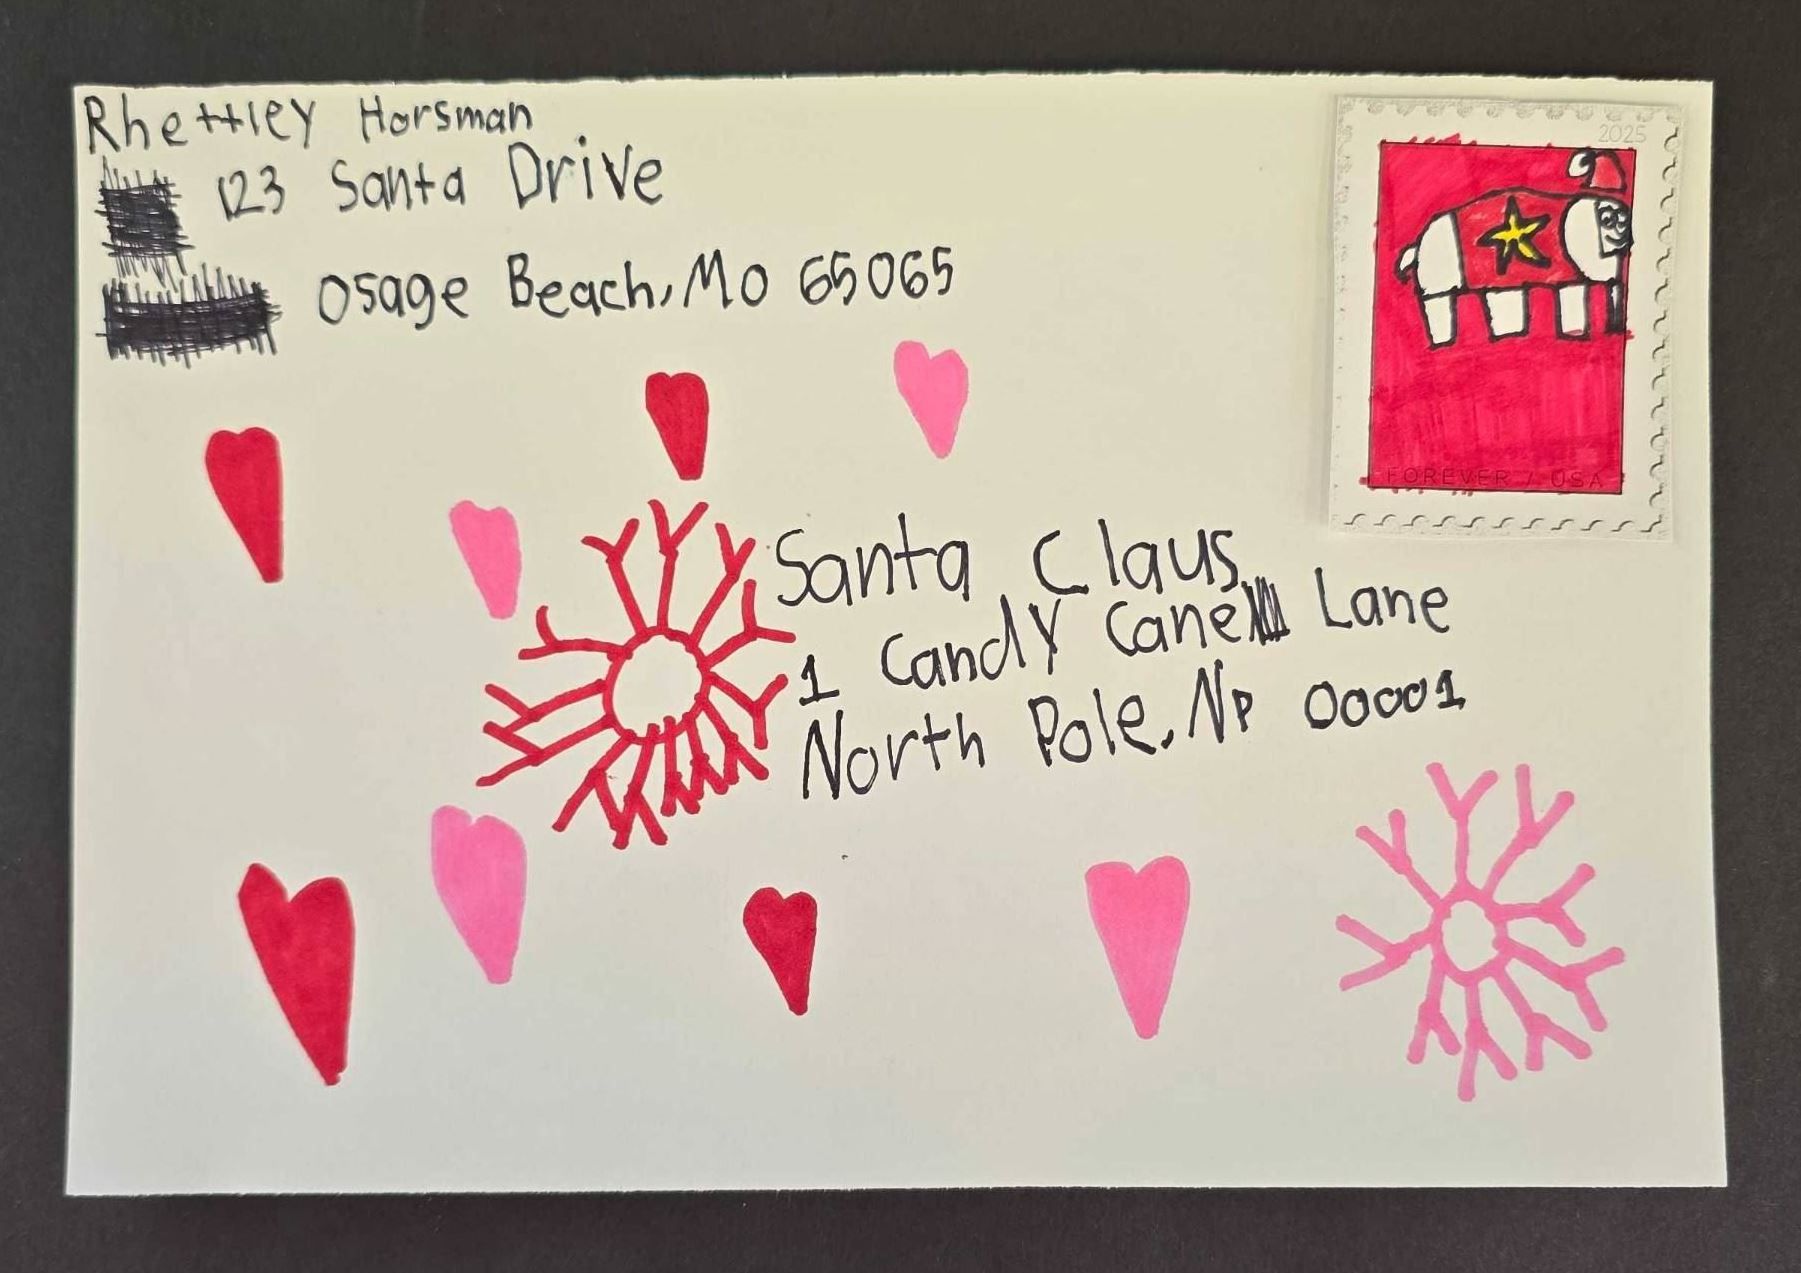 Rhettley Horsman
123 Santa Drive
Osage Beach, Mo 65065
2025
FOREVER / USA
Santa Claus
1 Candy Cane Lane
North Pole, NP 00001